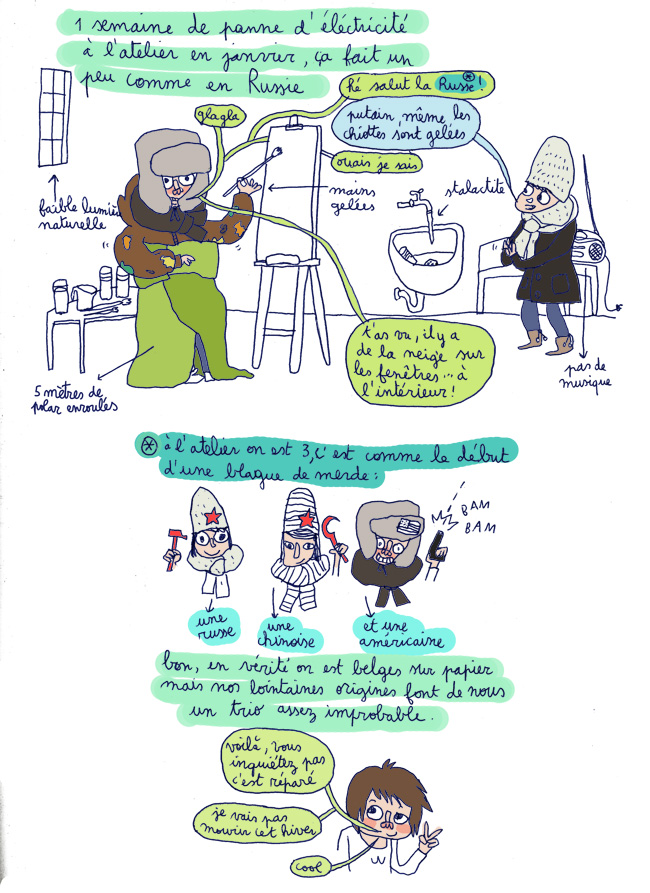 1 semaine de panne d'éléctricité
à l'atelier en janvier, ça fait un
peu comme en Russie
hé salut la Russe * !
glagla
putain, même les
chiottes sont gelées
ouais je sais
mains
gelées
stalactite
faible lumière
naturelle
t'as vu, il y a
de la neige sur
les fenêtres... à
l'intérieur !
pas de
musique
5 mètres de
polar enroulés
* à l'atelier on est 3, c'est comme le début
d'une blague de merde :
BAM
BAM
une
russe
une
chinoise
et une
américaine
bon, en vérité on est belges sur papier
mais nos lointaines origines font de nous
un trio assez improbable.
voilà, vous
inquiétez pas
c'est réparé
je vais pas
mourir cet hiver
cool